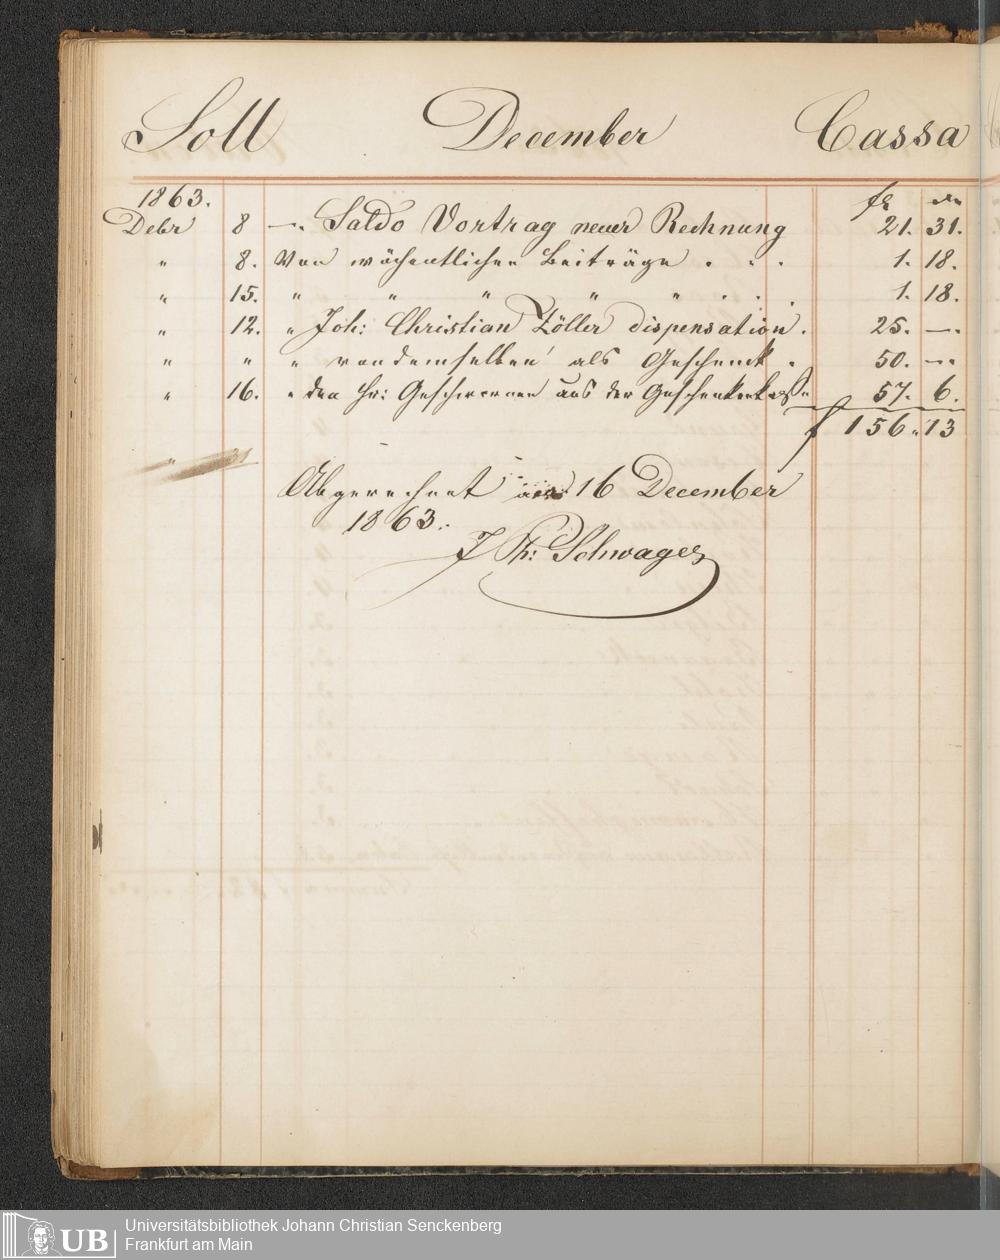 Soll December Cassa
1863. fl xr
Debr 8 —. Saldo Vortrag neuer Rechnung 21. 31.
" 8. Von wöchentlichen Beiträge . . . 1. 18.
" 15. " " " " " . . . 1. 18.
" 12. " Joh: Christian Zöller dispensation . 25. —.
" " " von demselben als Geschenck . 50. —.
" 16. " den Hr: Geschworenen aus der Geschenkenkasse 57. 6.
f 156. 13
" 31
Abgerechnet den 16 December
1863.
J Ph: Schwager
UB Universitätsbibliothek Johann Christian Senckenberg
Frankfurt am Main